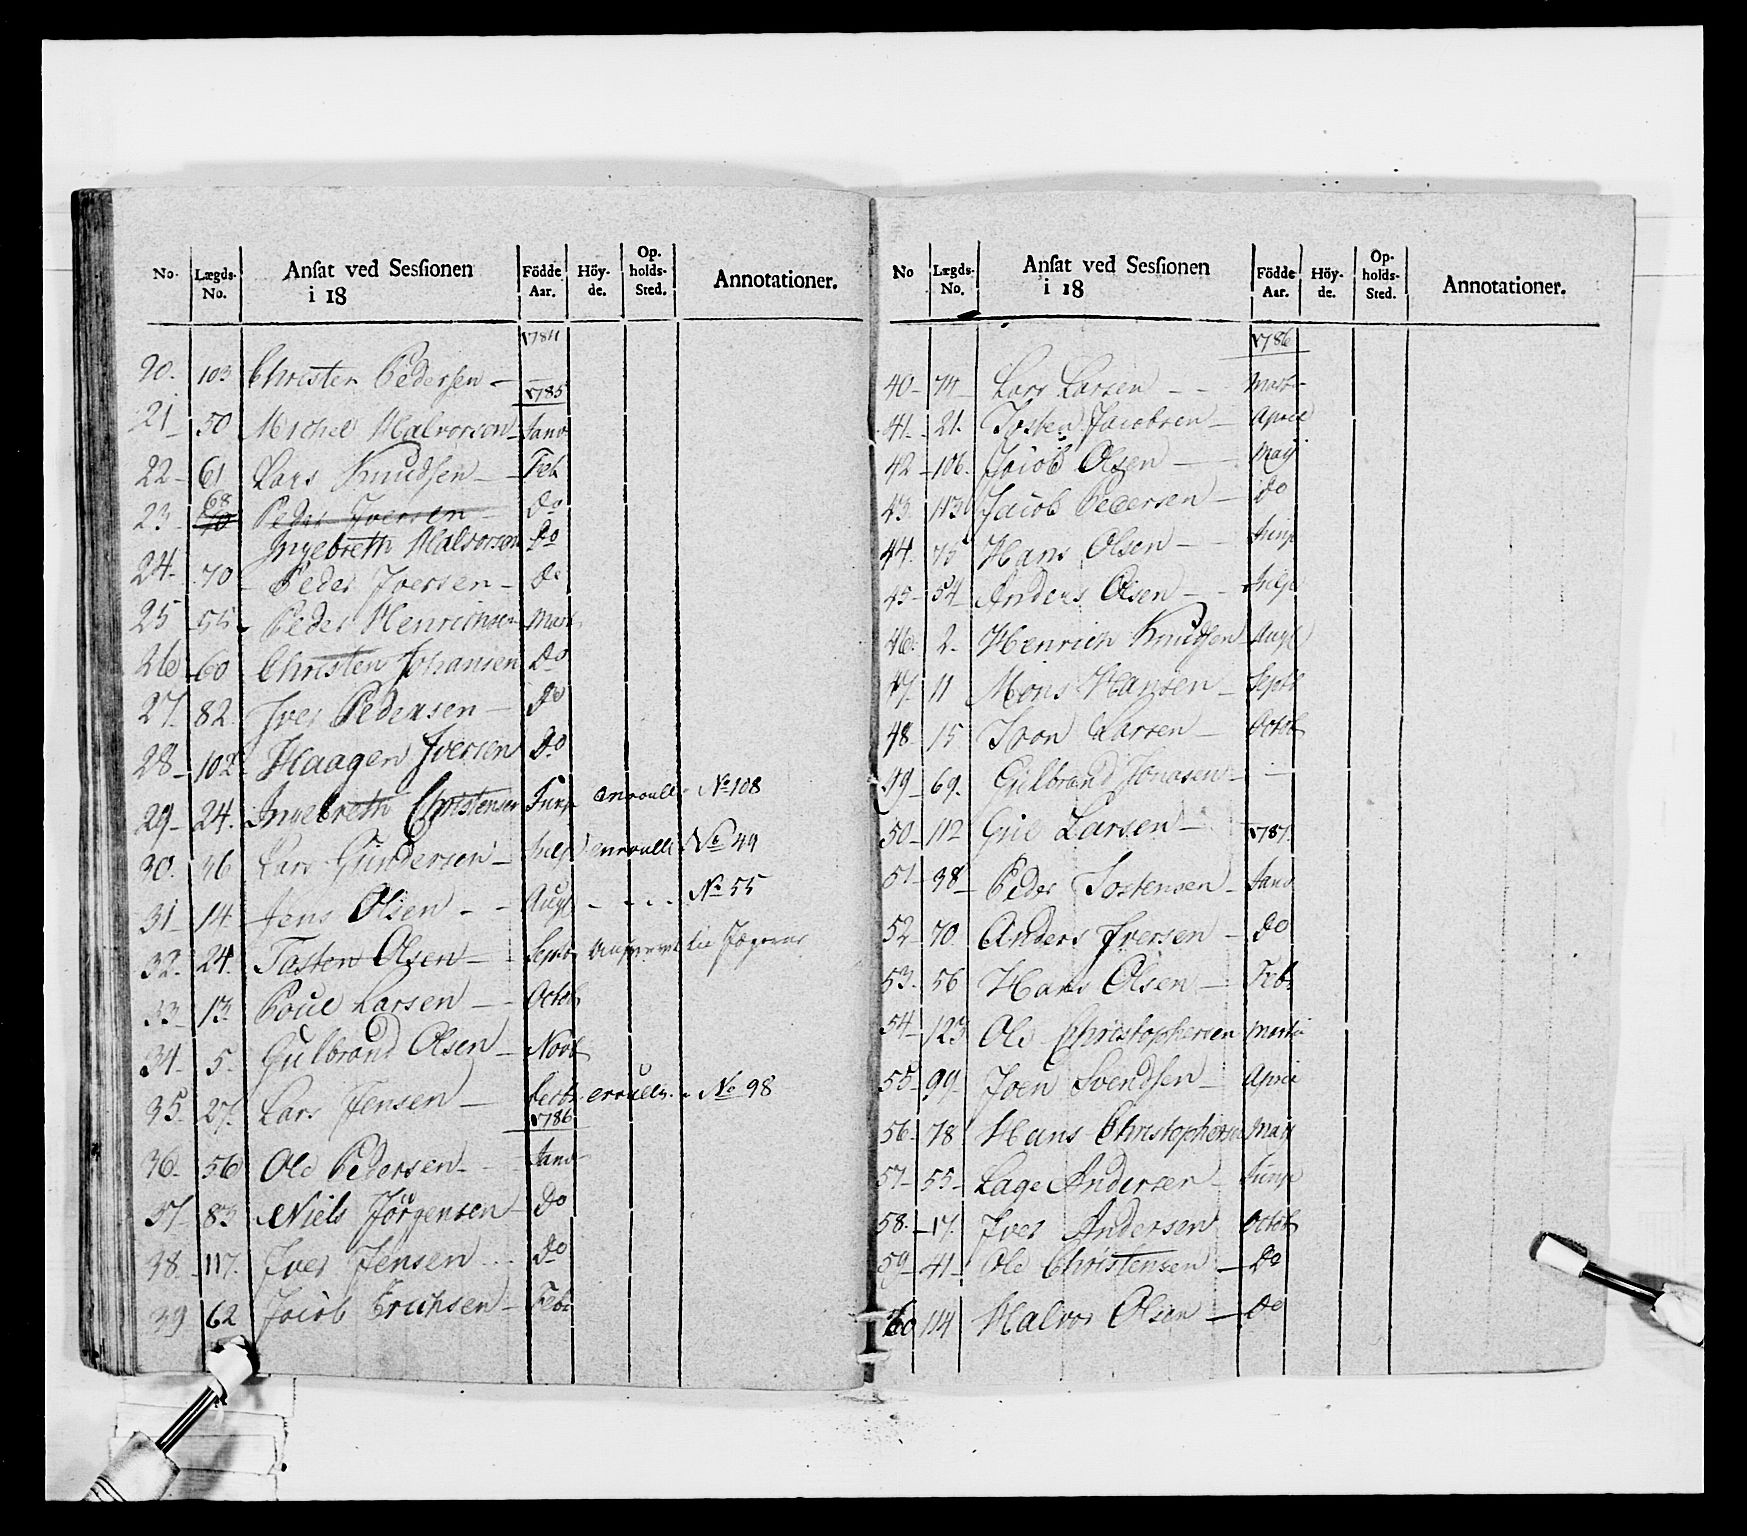 No. Lægds-No. Ansat ved Sessionen i 18 Födde Aar. Höy-de. Op-holds-Sted. Annotationer.
1784
20. 103 Christen Pedersen —
1785
21 50 Michel Halvorson Janv
22 61 Lars Knudsen — Feb
23 68 Peder Iversen Do
Ingebreth Halvorsen Do
24 70 Peder Iversen — Do
25 55 Peder Henrichsen Mart
26 60 Christen Johansen Do
27 82 Iver Pedersen — Do
28 102 Haagen Iversen Do
29 24. Ingebreth Christensen Juny enroull. No 108
30. 36 Lars Gundersen — July enroulli No 49
31 14 Jens Olsen - - Aug - - - - No 55
32. 24. Tosten Olsen — Septb til Jægerne
33 13 Poul Larsen — Octob
34 5. Gulbrand Olsen — Novb
35. 27. Lars Jensen — Decb. No 98
1786
36. 56 Ole Pedersen — Janv
37 83 Niels Jörgensen Do
38 117. Iver Jensen Do
39 62 Jacob Erichsen — Feb
No Lægds-No. Ansat ved Sessionen i 18 Födde Aar. Höy-de. Op-holds-Sted. Annotationer.
1786
40 74 Lars Larsen - - Mart
41 21. Tosten Jacobsen — April
42 106. Jacob Olsen — May
43. 113 Jacob Pedersen — Do
44. 75 Hans Olsen — Juny
45 54 Anders Olsen — July
46. 2. Henrich Knudsen Augt
47. 11 Mons Hansen — Septb
48 15 Iver Larsen — Octob
49 69. Gulbrand Jonasen —
50 112 Larsen —
1787.
51 38 Peder Tostensen — Janv
52 70. Anders Iversen — Do
53. 56 Hans Olsen — Feb
54 123 Ole Christophersen Martii
55 99 Joen Svendsen — April
56. 78 Hans Christophersen May
57 55 Lage Andersen — Juny
58. 17. Iver Andersen Octob
59 41 Ole Christensen — Do
60 114 Halvor Olsen — Do